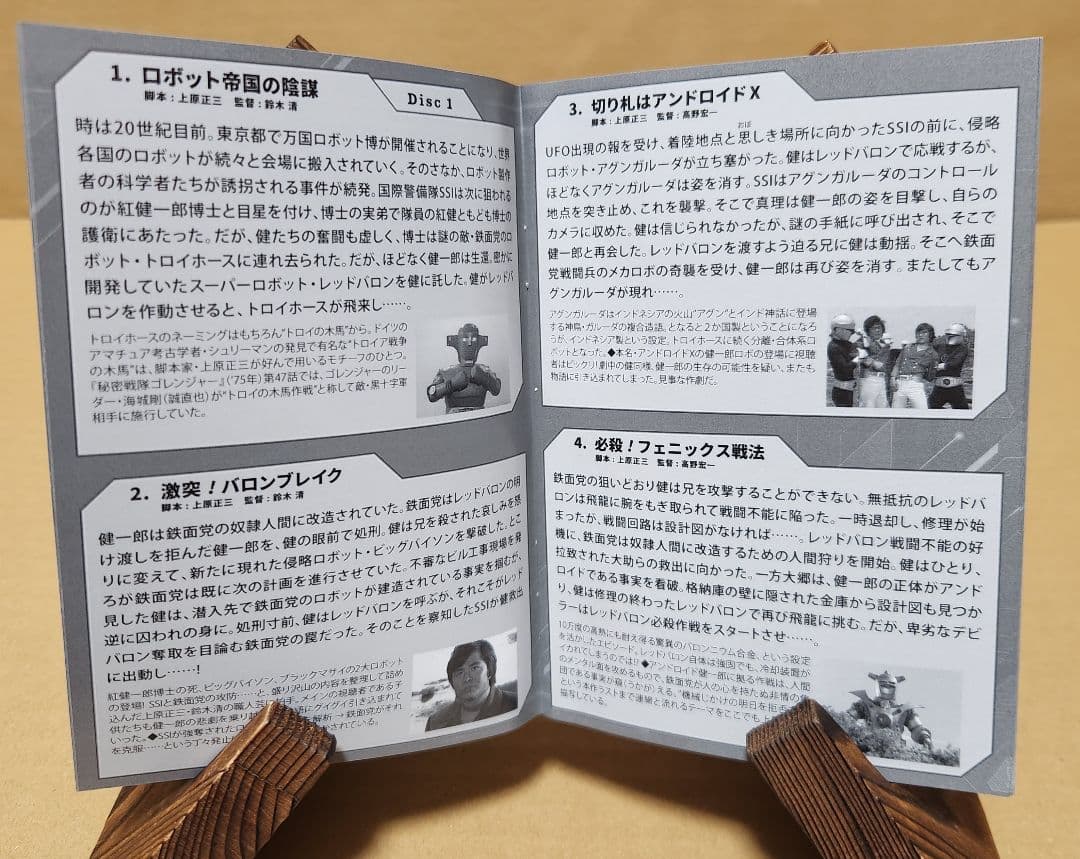 1. ロボット帝国の陰謀
脚本：上原正三　監督：鈴木 清
Disc 1
時は20世紀目前。東京都で万国ロボット博が開催されることになり、世界
各国のロボットが続々と会場に搬入されていく。そのさなか、ロボット製作
者の科学者たちが誘拐される事件が続発。国際警備隊SSIは次に狙われる
のが紅健一郎博士と目星を付け、博士の実弟で隊員の紅健ともども博士の
護衛にあたった。だが、健たちの奮闘も虚しく、博士は謎の敵・鉄面党のロ
ボット・トロイホースに連れ去られた。だが、ほどなく健一郎は生還。密かに
開発していたスーパーロボット・レッドバロンを健に託した。健がレッドバ
ロンを作動させると、トロイホースが飛来し……。
トロイホースのネーミングはもちろん“トロイの木馬”から。ドイツの
アマチュア考古学者・シュリーマンの発見で有名な“トロイア戦争
の木馬”は、脚本家・上原正三が好んで用いるモチーフのひとつ。
『秘密戦隊ゴレンジャー』（'75年）第47話では、ゴレンジャーのリー
ダー・海城剛（誠直也）が“トロイの木馬作戦”と称して敵・黒十字軍
相手に施行していた。
2. 激突！バロンブレイク
脚本：上原正三　監督：鈴木 清
健一郎は鉄面党の奴隷人間に改造されていた。鉄面党はレッドバロンの明
け渡しを拒んだ健一郎を、健の眼前で処刑。健は兄を殺された哀しみを怒
りに変えて、新たに現れた侵略ロボット・ビッグバイソンを撃破した。とこ
ろが鉄面党は既に次の計画を進行させていた。不審なビル工事現場を発
見した健は、潜入先で鉄面党のロボットが建造されている事実を掴むが、
逆に囚われの身に。処刑寸前、健はレッドバロンを呼ぶが、それこそがレッド
バロン奪取を目論む鉄面党の罠だった。そのことを察知したSSIが健救出
に出動し……！
紅健一郎博士の死、ビッグバイソン、ブラックマサイの2大ロボット
の登場！SSIと鉄面党の攻防……と、盛り沢山の内容を整理して詰め
込んだ上原正三・鈴木清の職人芸
メインの視聴者である子
供たちも健一郎の悲劇を乗り
にグイグイ引き込まれて
いった。◆SSIが強奪された
解析→鉄面党がそれ
を克服……という丁々発止
されている。
3. 切り札はアンドロイドX
脚本：上原正三　監督：高野宏一
おぼ
UFO出現の報を受け、着陸地点と思しき場所に向かったSSIの前に、侵略
ロボット・アグンガルーダが立ち塞がった。健はレッドバロンで応戦するが、
ほどなくアグンガルーダは姿を消す。SSIはアグンガルーダのコントロール
地点を突き止め、これを襲撃。そこで真理は健一郎の姿を目撃し、自らの
カメラに収めた。健は信じられなかったが、謎の手紙に呼び出され、そこで
健一郎と再会した。レッドバロンを渡すよう迫る兄に健は動揺。そこへ鉄面
党戦闘兵のメカロボの奇襲を受け、健一郎は再び姿を消す。またしてもア
グンガルーダが現れ……。
アグンガルーダはインドネシアの火山“アグン”とインド神話に登場
する神鳥・ガルーダの複合造語、となると2か国製ということになろ
うが、インドネシア製という設定。トロイホースに続く分離・合体系ロ
ボットとなった。◆本名・アンドロイドXの健一郎ロボの登場に視聴
者はビックリ！劇中の健同様、健一郎の生存の可能性を疑い、またも
物語に引き込まれてしまった。見事な作劇だ。
4. 必殺！フェニックス戦法
脚本：上原正三　監督：高野宏一
鉄面党の狙いどおり健は兄を攻撃することができない。無抵抗のレッドバ
ロンは飛龍に腕をもぎ取られて戦闘不能に陥った。一時退却し、修理が始
まったが、戦闘回路は設計図がなければ……。レッドバロン戦闘不能の好
機に、鉄面党は奴隷人間に改造するための人間狩りを開始。健はひとり、
拉致された大助らの救出に向かった。一方大郷は、健一郎の正体がアンド
ロイドである事実を看破。格納庫の壁に隠された金庫から設計図も見つか
り、健は修理の終わったレッドバロンで再び飛龍に挑む。だが、卑劣なデビ
ラーはレッドバロン必殺作戦をスタートさせ……。
10万度の高熱にも耐え得る驚異のバロンニウム合金、という設定
を活かしたエピソード。レッドバロン自体は強固でも、冷却装置が
イカれてしまうのでは!?◆アンドロイド健一郎に拠る作戦は、人間
のメンタル面を攻めるもので、鉄面党が人の心を持たぬ非情の集
団である事実が窺（うかが）える。“機械じかけの明日を拒否
という本作ラストまで連綿と流れるテーマをここでも
描写している。